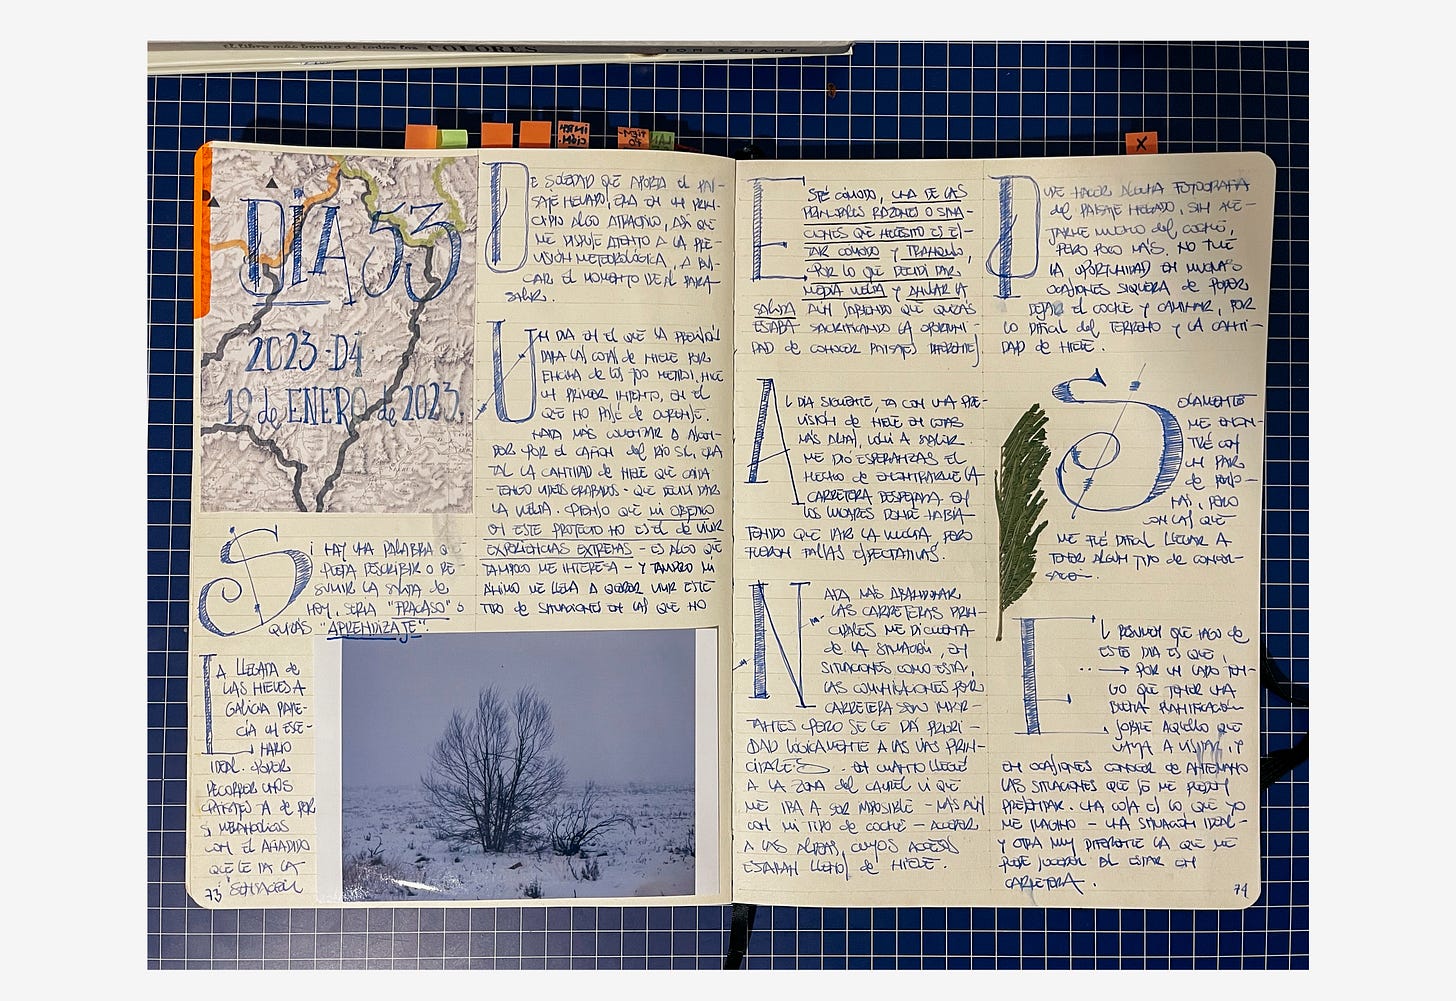 el libro más bonito de todos los COLORES
TOM SCHAMP
X
DÍA 53
2023·D4
19 de ENERO de 2023.
SI HAY UNA PALABRA QUE
PUEDA DESCRIBIR O RE-
SUMIR LA SALIDA de
HOY, SERÍA "FRACASO" O
QUIZÁS "APRENDIZAJE".
LA LLEGADA de
LAS NIEVES A
GALICIA PARE-
CÍA UN ESCE-
NARIO
IDEAL. PODER
RECORRER UNOS
PAISAJES YA de POR
SÍ MELANCÓLICOS
CON EL AÑADIDO
QUE LE DA LA
SENSACIÓN
73
DE SOLEDAD QUE APORTA el PAI-
SAJE HELADO, ERA EN UN PRIN-
CIPIO ALGO ATRACTIVO, ASÍ QUE
ME DISPUSE ATENTO A LA PRE-
VISIÓN METEOROLÓGICA, A BUS-
CAR EL MOMENTO IDEAL PARA
SALIR.
UN DIA EN EL QUE LA PREVISIÓN
DABA LA COTA de NIEVE POR
ENCIMA de LOS 700 METROS, HICE
UN PRIMER INTENTO, EN EL
QUE NO PASÉ de OURENSE.
NADA MÁS COMENZAR A ASCEN-
DER POR EL CAÑON del RÍO SIL, ERA
TAL LA CANTIDAD de NIEVE QUE CAÍA
- TENGO VIDEOS GRABADOS - QUE DECIDÍ DAR
LA VUELTA. PIENSO QUE MI OBJETIVO
EN ESTE PROYECTO NO ES EL de VIVIR
EXPERIENCIAS EXTREMAS - ES ALGO QUE
TAMPOCO ME INTERESA - Y TAMPOCO MI
ÁNIMO ME LLEVA A QUERER VIVIR ESTE
TIPO de SITUACIONES EN LAS QUE NO
ESTÉ CÓMODO, UNA DE LAS
PRINCIPALES RAZONES O SITUA-
CIONES QUE NECESITO ES ES-
TAR COMODO Y TRANQUILO,
POR LO QUE DECIDÍ DAR
MEDIA VUELTA Y ANULAR LA
SALIDA AÚN SABIENDO QUE QUIZÁS
ESTABA SACRIFICANDO LA OPORTUNI-
DAD de CONOCER PAISAJES DIFERENTES
AL DIA SIGUIENTE, YA CON UNA PRE-
VISIÓN de NIEVE EN COTAS
MÁS ALTAS, VOLVÍ A SALIR.
ME DIÓ ESPERANZAS EL
HECHO de ENCONTRARME LA
CARRETERA DESPEJADA EN
LOS LUGARES DONDE HABÍA
TENIDO QUE DAR LA VUELTA, PERO
FUERON FALSAS EXPECTATIVAS.
NADA MÁS ABANDONAR
LAS CARRETERAS PRIN-
CIPALES ME DI CUENTA
de LA SITUACIÓN, EN
SITUACIONES COMO ESTA,
LAS COMUNICACIONES POR
CARRETERA SON IMPOR-
TANTES PERO SE LE DA PRIORI-
DAD LÓGICAMENTE A LAS VÍAS PRIN-
CIPALES. EN CUANTO LLEGUÉ
A LA ZONA del CAUREL VI QUE
ME IBA A SER IMPOSIBLE - MÁS AÚN
CON MI TIPO de COCHE - ACCEDER
A LAS ALDEAS, CUYOS ACCESOS
ESTABAN LLENOS de NIEVE.
PUDE HACER ALGUNA FOTOGRAFÍA
del PAISAJE HELADO, SIN ALE-
JARME MUCHO del COCHE,
PERO POCO MÁS. NO TUVE
LA OPORTUNIDAD EN MUCHAS
OCASIONES SIQUIERA de PODER
DEJAR EL COCHE Y CAMINAR, POR
LO DIFÍCIL del TERRENO Y LA CANTI-
DAD de NIEVE.
SOLAMENTE
ME ENCON-
TRÉ CON
UN PAR
de PERSO-
NAS, PERO
CON LAS QUE
ME FUE DIFÍCIL LLEGAR A
TENER ALGÚN TIPO de CONVER-
SACIÓN.
EL RESUMEN QUE HAGO de
ESTE DIA ES QUE,
POR UN LADO TEN-
GO QUE TENER UNA
BUENA PLANIFICACIÓN
SOBRE AQUELLO QUE
VAYA A VISITAR, Y
EN OCASIONES CONOCER de ANTEMANO
LAS SITUACIONES QUE SE ME PUEDEN
PRESENTAR. UNA COSA ES LO QUE YO
ME IMAGINO - UNA SITUACIÓN IDEAL-
Y OTRA MUY DIFERENTE LA QUE ME
PUEDE SUCEDER AL ESTAR EN
CARRETERA.
74